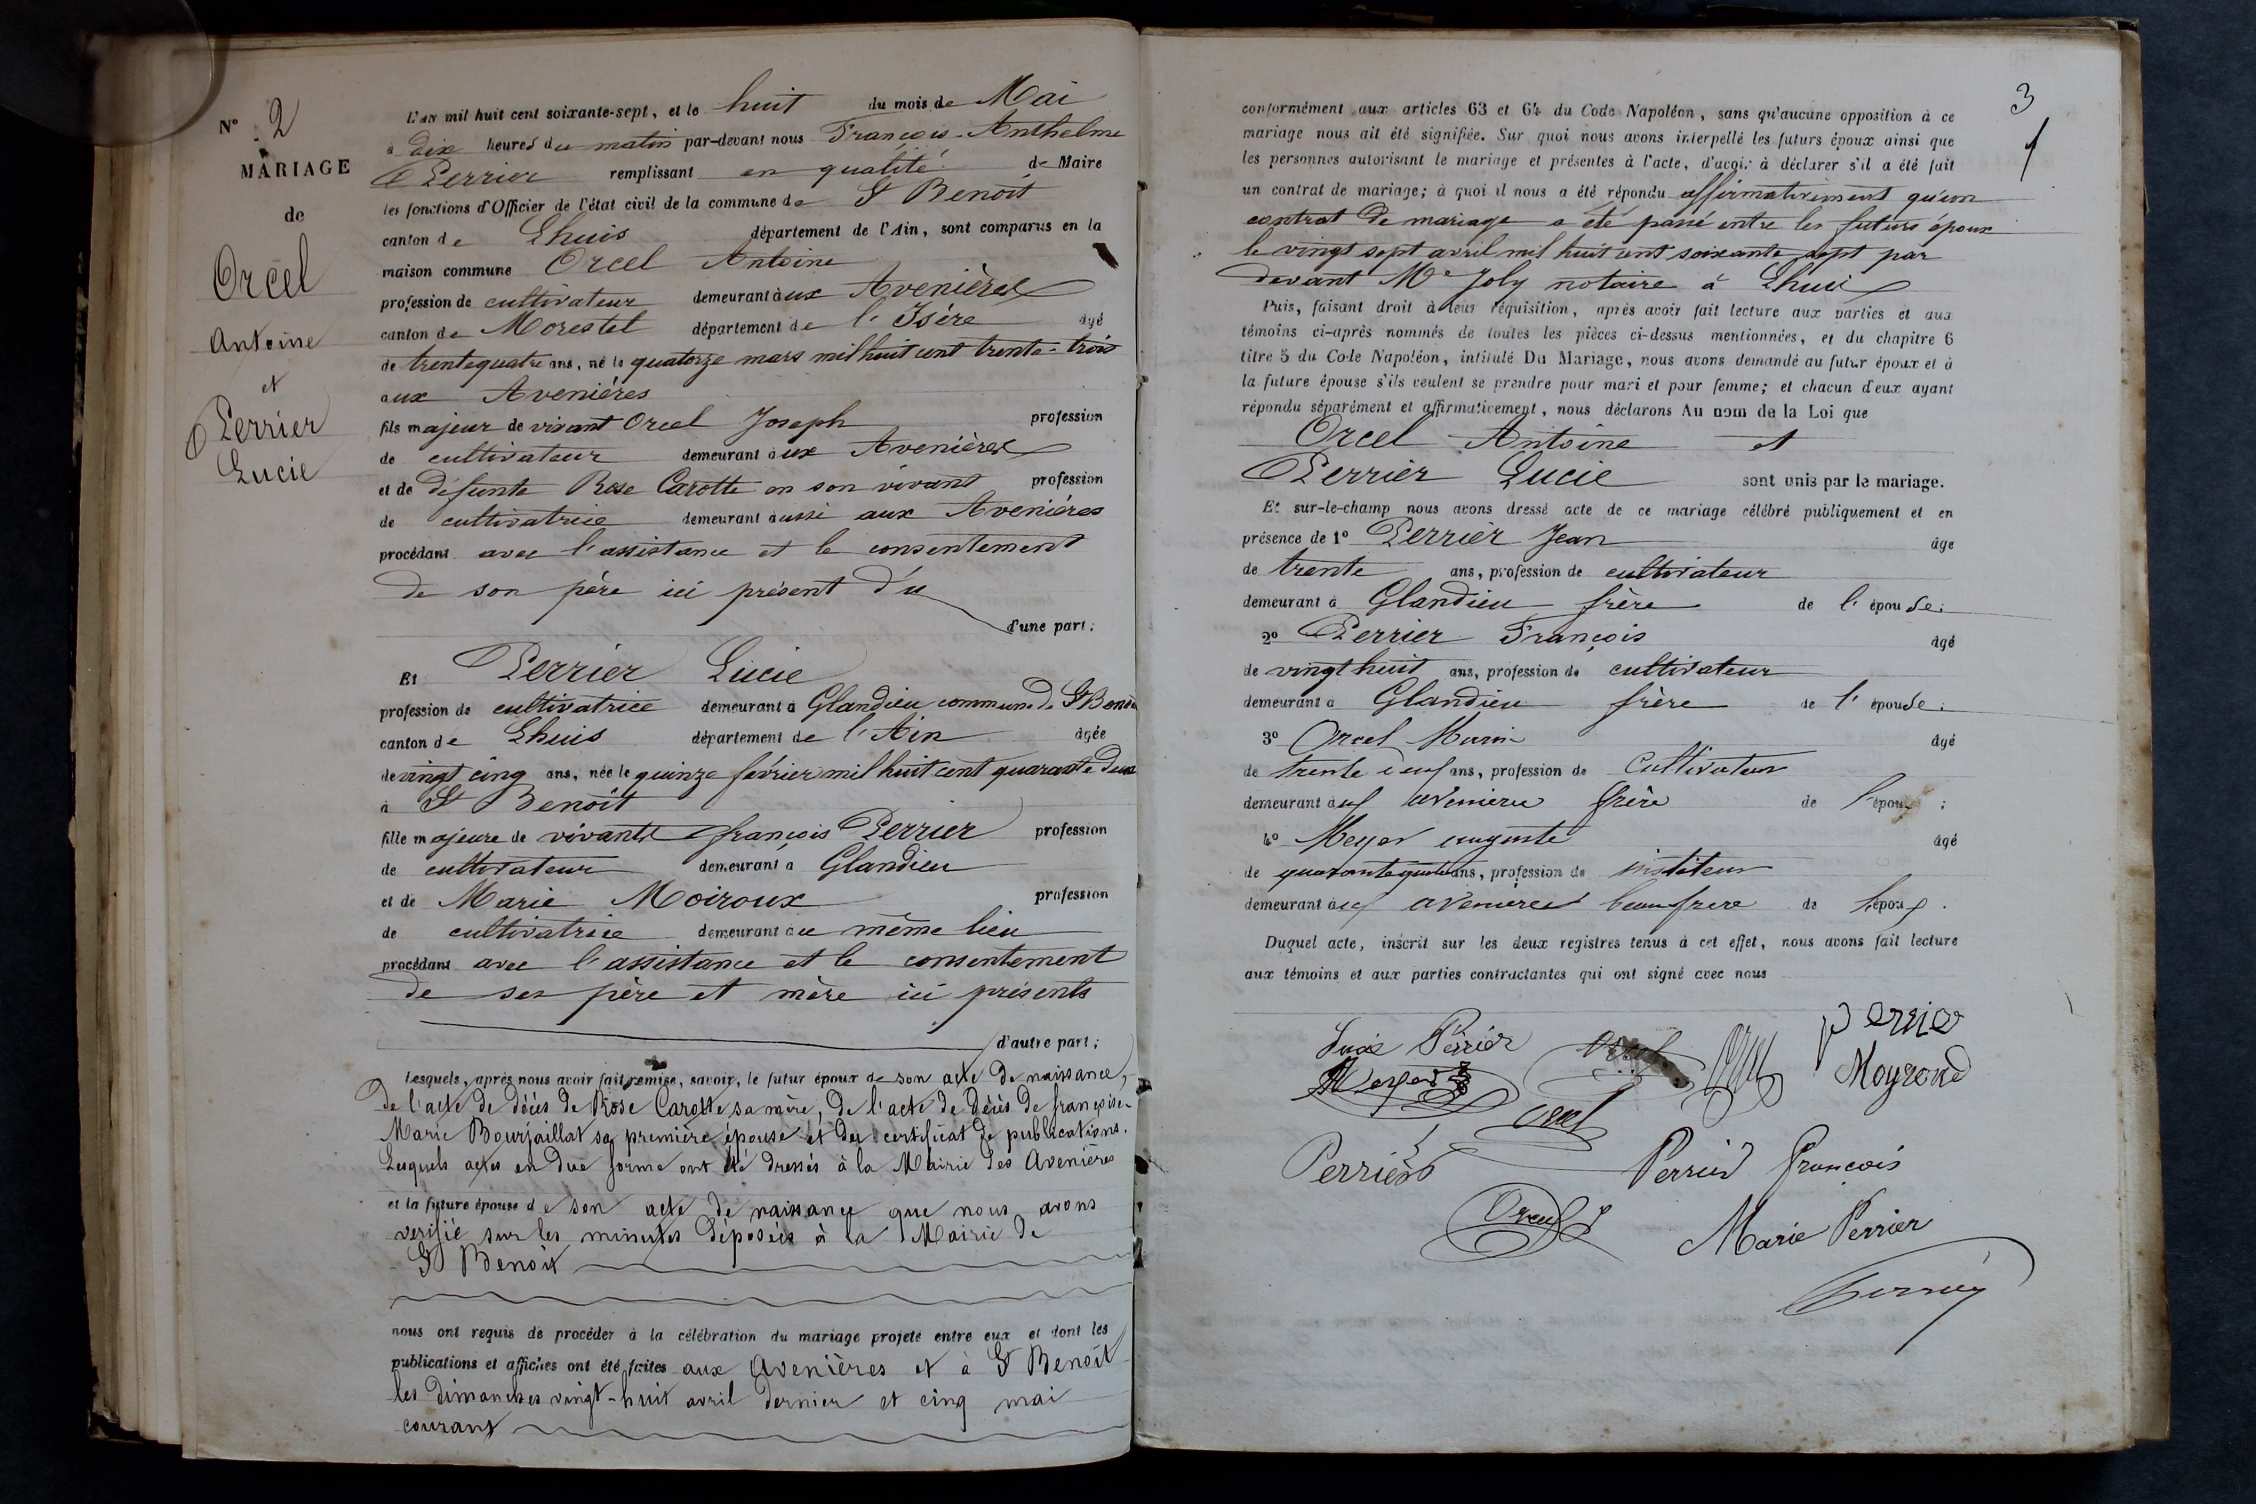 N° 2
MARIAGE
de
Orcel
Antoine
et
Perrier
Lucie
L'an mil huit cent soixante-sept, et le huit du mois de Mai
à dix heures du matin par-devant nous François-Anthelme
Perrier remplissant en qualité de Maire
les fonctions d'Officier de l'état civil de la commune de St Benoît
canton de Lhuis département de l'Ain, sont comparus en la
maison commune Orcel Antoine
profession de cultivateur demeurant aux Avenières
canton de Morestel département de l'Isère âgé
de trente quatre ans, né le quatorze mars mil huit cent trente-trois
aux Avenières
fils majeur de vivant Orcel Joseph profession
de cultivateur demeurant aux Avenières
et de défunte Rose Carotte en son vivant profession
de cultivatrice demeurant aussi aux Avenières
procédant avec l'assistance et le consentement
de son père ici présent d'u
d'une part;
Et Perrier Lucie
profession de cultivatrice demeurant à Glandieu commune de St Benoît
canton de Lhuis département de l'Ain âgée
de vingt cinq ans, née le quinze février mil huit cent quarante deux
à St Benoît
fille majeure de vivants françois Perrier profession
de cultivateur demeurant à Glandieu
et de Marie Moiroux profession
de cultivatrice demeurant au même lieu
procédant avec l'assistance et le consentement
de ses père et mère ici présents
d'autre part;
Lesquels, après nous avoir fait remise, savoir, le futur époux de son acte de naissance,
de l'acte de décès de Rose Carotte sa mère, de l'acte de décès de françoise-
Marie Bourjaillat sa première épouse et du certificat de publications.
Lesquels actes en due forme ont été dressés à la Mairie des Avenières
et la future épouse de son acte de naissance que nous avons
verifié sur les minutes déposées à la Mairie de
St Benoît
nous ont requis de procéder à la célébration du mariage projeté entre eux et dont les
publications et affiches ont été faites aux Avenières et à St Benoît
les dimanches vingt-huit avril dernier et cinq mai
courant
3
conformément aux articles 63 et 64 du Code Napoléon, sans qu'aucune opposition à ce
mariage nous ait été signifiée. Sur quoi nous avons interpellé les futurs époux ainsi que
les personnes autorisant le mariage et présentes à l'acte, d'avoir à déclarer s'il a été fait
un contrat de mariage; à quoi il nous a été répondu affirmativement qu'un
contrat de mariage a été passé entre les futurs époux
le vingt sept avril mil huit cent soixante sept par
devant Me Joly notaire à Lhuis
Puis, faisant droit à leur réquisition, après avoir fait lecture aux parties et aux
témoins ci-après nommés de toutes les pièces ci-dessus mentionnées, et du chapitre 6
titre 5 du Code Napoléon, intitulé Du Mariage, nous avons demandé au futur époux et à
la future épouse s'ils veulent se prendre pour mari et pour femme; et chacun d'eux ayant
répondu séparément et affirmativement, nous déclarons Au nom de la Loi que
Orcel Antoine et
Perrier Lucie sont unis par le mariage.
Et sur-le-champ nous avons dressé acte de ce mariage célébré publiquement et en
présence de 1° Perrier Jean âgé
de trente ans, profession de cultivateur
demeurant à Glandieu frère de l'épouse;
2° Perrier François âgé
de vingt huit ans, profession de cultivateur
demeurant à Glandieu frère de l'épouse;
3° Orcel âgé
de trente ans, profession de Cultivateur
demeurant aux avenieres frère de l'époux;
4° Meyer auguste âgé
de quarante quatre ans, profession de instituteur
demeurant aux avenieres beaufrere de l'époux.
Duquel acte, inscrit sur les deux registres tenus à cet effet, nous avons fait lecture
aux témoins et aux parties contractantes qui ont signé avec nous
Lucie Perrier Orcel Perrier
Meyer Orcel
Perrier Perrier François
Orcel Marie Perrier
Perrier